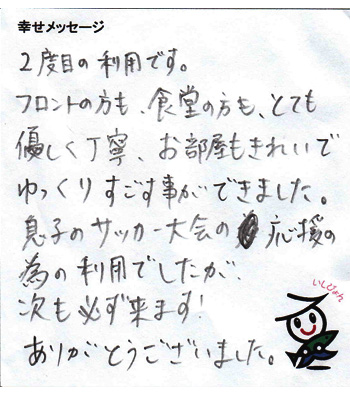 幸せメッセージ
2度目の利用です。
フロントの方も、食堂の方も、とても
優しく丁寧、お部屋もきれいで
ゆっくりすごす事ができました。
息子のサッカー大会の応援の
為の利用でしたが、
次も必ず来ます!
ありがとうございました。
いしぴょん